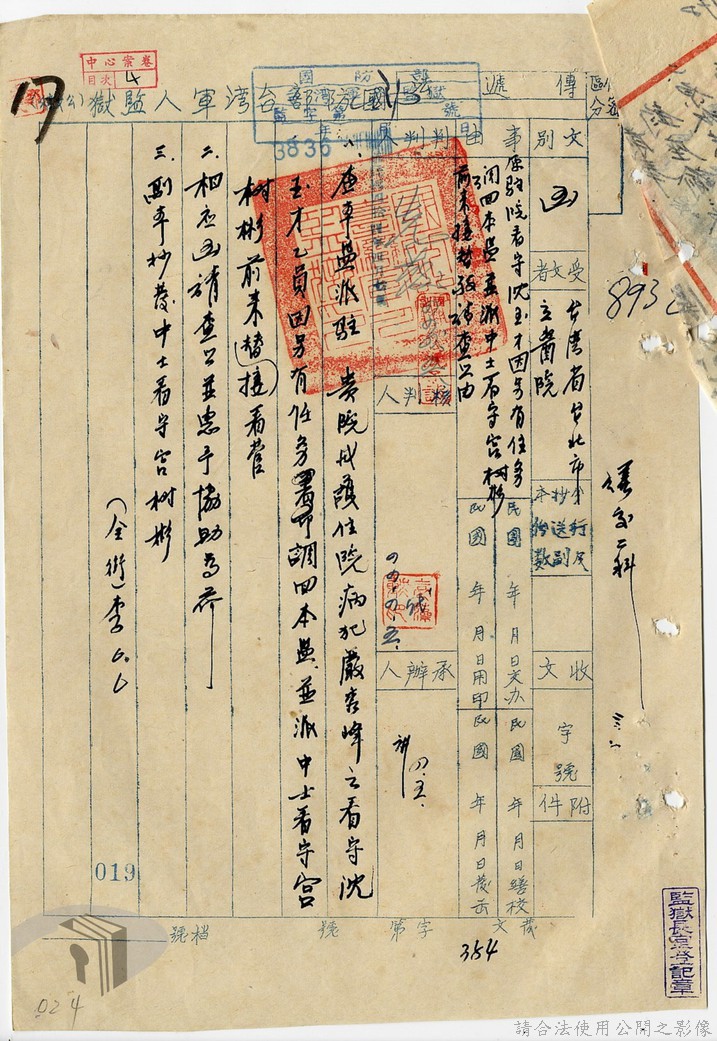 中心案卷
目次 4
17
國防部台湾軍人監獄
3836
傳遞
區分
文別
函
受文者
台灣省台北市立醫院
事由
原駐院看守沈玉才因另有任务
调回本監並派中士看守宮樹彬
前来接替敬請查照由
判行
核判人
承辦人
收文
字號
附件
民國 年 月 日交办
民國 年 月 日用印
民國 年 月 日繕校
民國 年 月 日發出
一、查本監派駐 貴院戒護住院病犯嚴杏峰之看守沈
玉才乙員因另有任务着即調回本監並派中士看守宮
树彬前来接替看管
二、相应函請查照並惠予協助為荷
三、副本抄發中士看守宮树彬
(全銜)李○○
8932
發文 字第 號
354
檔號
019
024
監獄長室登記章
請合法使用公開之影像